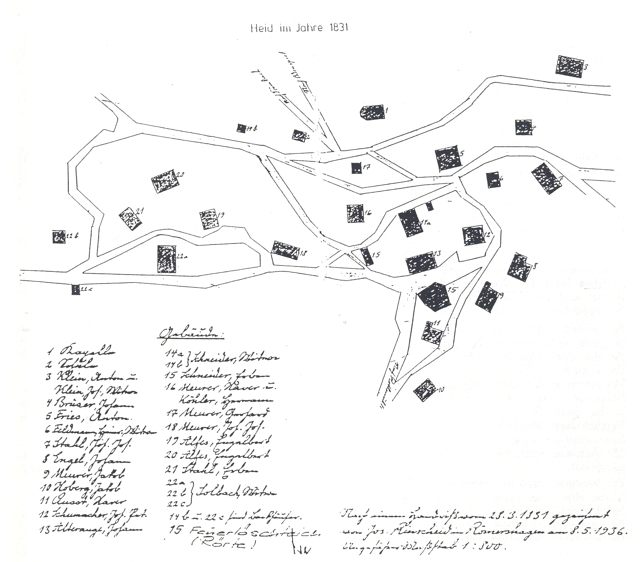 Heid im Jahre 1831
Gebäude:
1 Kapelle
2
3 Klein, Anton u.
Klein Jos, Witwe
4 Bruser, Johann
5 Fries, Anton
6 Feldmann, Witwe
7 Stahl, Joh. Jos.
8 Engel, Johann
9 Meurer, Jakob
10 Hoberg, Jakob
11 Xaver
12 Schumacher, Joh.
13 Johann
14a } Schneider, Witwe
14b
15 Schneider, Erben
16 Meurer, Xaver u.
Köhler, Hermann
17 Meurer, Gerhard
18 Meurer, Joh. Jos.
19 Alfes, Engelbert
20 Alfes, Engelbert
21 Stahl, Erben
22a
22b } Solbach, Witwe
22c
14b u. 22c sind Backhäuser.
15 Feuerlöschteich
(Rörte)
Nach einem Handriß vom 28.3.1831 gezeichnet
von Jos. in Römershagen am 8.5.1936.
Ungefährer Maßstab 1:500.